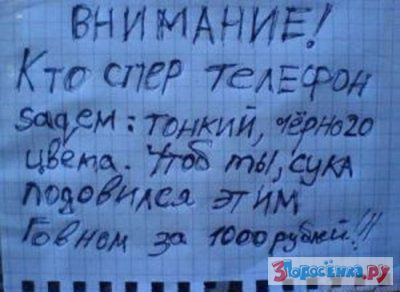 ВНИМАНИЕ!
Кто спер телефон
sagem: тонкий, чёрного
цвета. Чтоб ты, сука
подовился этим
Говном за 1000 рублей!!!
3Поросёнка.РУ